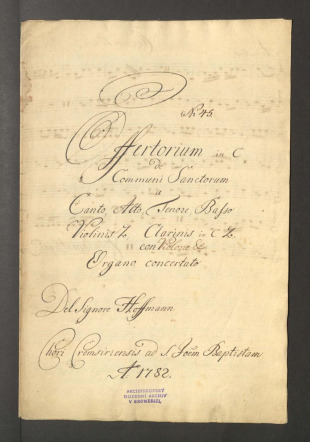 No 45.
Offertorium in C
de
Communi Sanctorum
a
Canto, Alto, Tenore, Basso
Violinis 2. Clarinis in C 2.
con Violone &
Organo concertato
Del Signore Hoffmann
Chori Cremsiriensis ad S. Joem Baptistam
A 1782.
ARCIBISKUPSKÝ
HUDEBNÍ ARCHIV
V KROMĚŘÍŽI